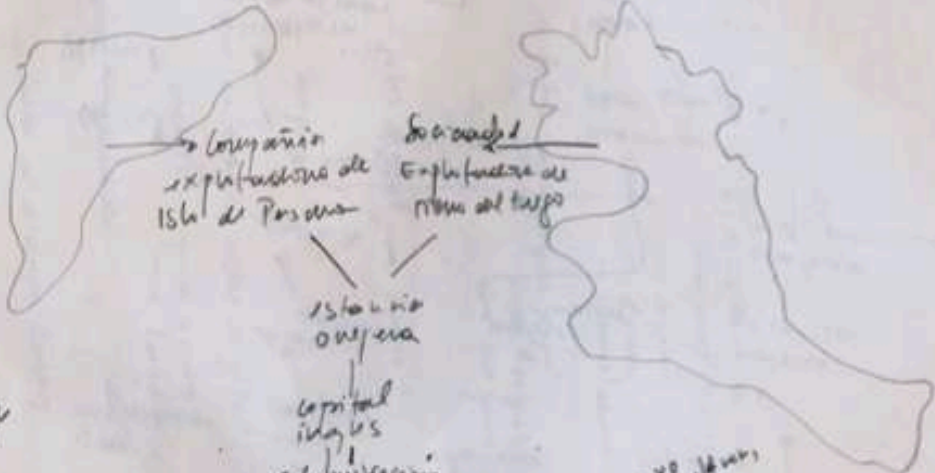 Compañia
explotadora de
Isla de Pascua
Sociedad
Explotadora de
Tierra del Fuego
estancia
ovejera
capital
inglés